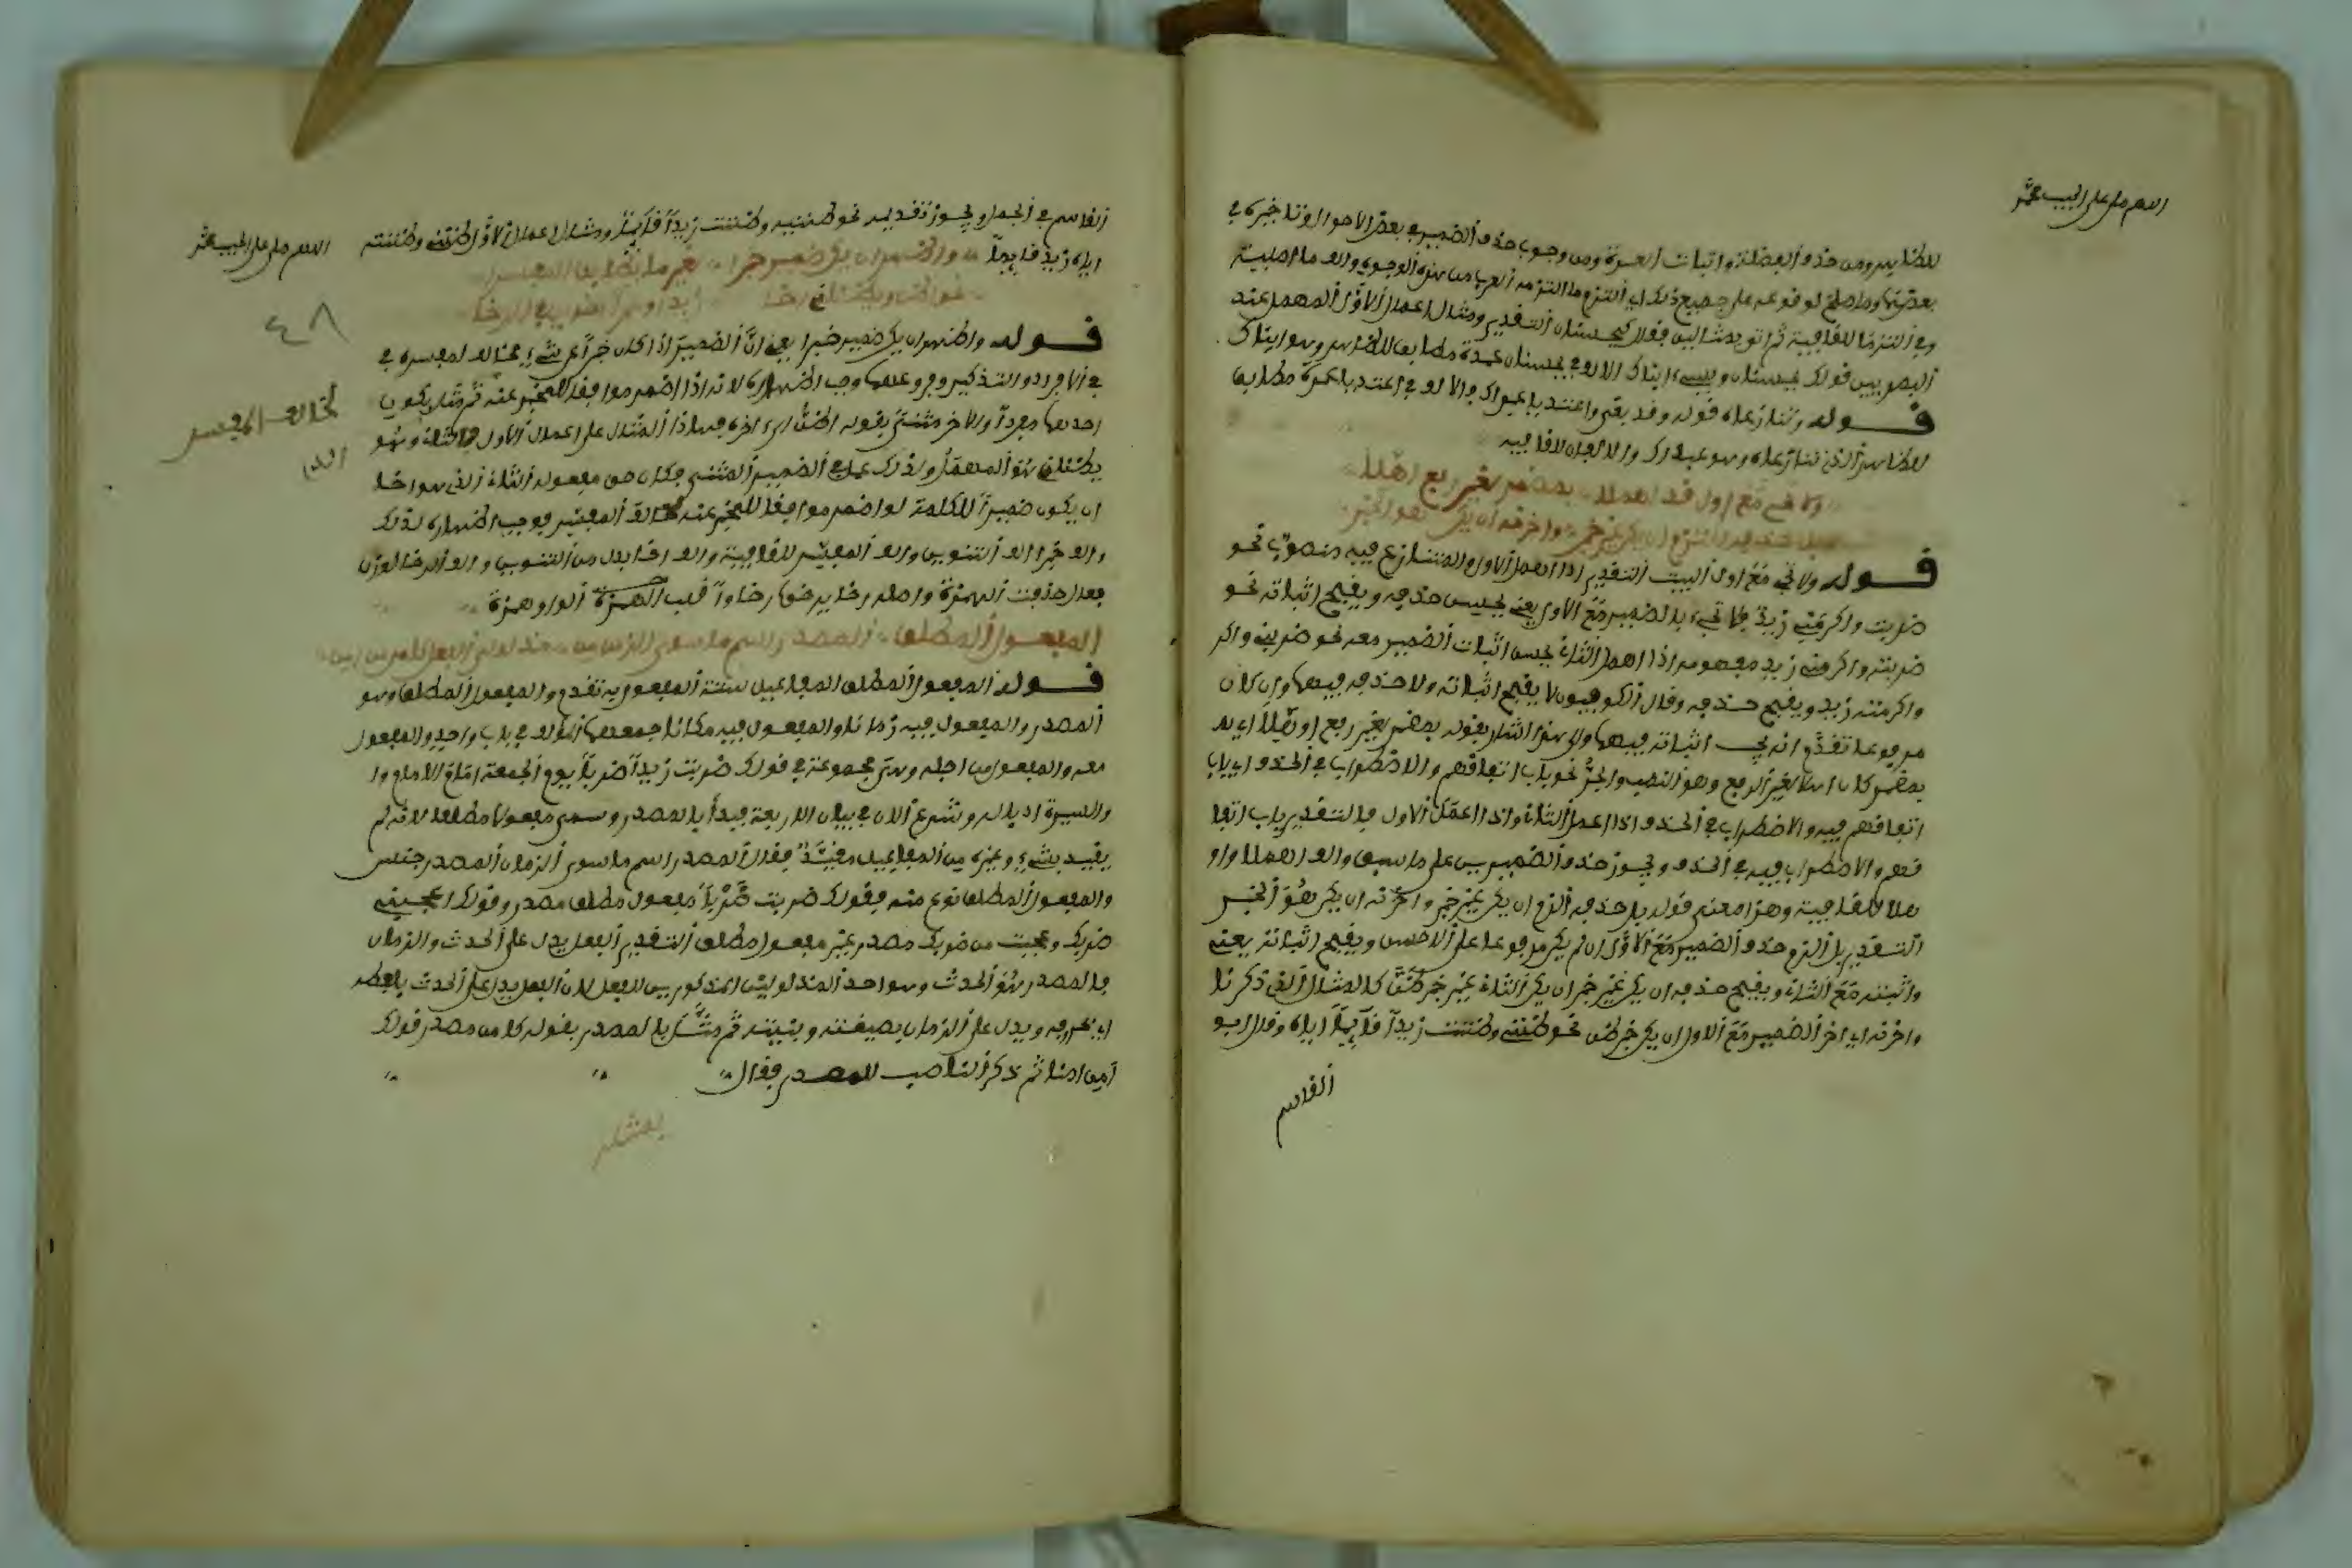 اللهم صل على الحبيب محمد
للظاهر ومن حذف الفضلة واثبات العمدة ومن وجوب حذف الضمير في بعض الاحوال وتاخيره في
بعضها وما صلح لوقوعه على جميع ذلك اي التزم ما التزمه العرب من هذه الوجوه والف ما اصلية
وفي التزما للقافية ثم اتى بمثالين فقال كيحسنان التقدير ومثال اعمال الاول المهمل عند
البصريين قولك يحسنان ويسيء ابناك الالف في يحسنان عمدة مطابق للظاهر وهو ابناك
قوله تنازعاه قوله وقد بغى واعتديا عبداك والالف في اعتديا عمدة مطابق
للظاهر الذي تنازعاه وهو عبداك والالفان للقافية
ولا تجي مع اول قد اهملا بمضمر لغير رفع اوهلا
بل حذفه الزم ان يكن غير خبر واخرنه ان يكن هو الخبر
قوله ولا تجي مع اول البيت التقدير اذا اهمل الاول والمتنازع فيه منصوب نحو
ضربت واكرمني زيد فلا تجيء بالضمير مع الاول يعني يحسن حذفه ويقبح اثباته نحو
ضربته واكرمني زيد مفهومه اذا اهمل الثاني يحسن اثبات الضمير معه نحو ضربني واكر
واكرمته زيد ويقبح حذفه وقال الكوفيون لا يقبح اثباته ولا حذفه فيهما وان كان
مرفوعا تقدم انه يجب اثباته فيهما والى هذا اشار بقوله بمضمر لغير رفع اوهلا اي لا
بمضمر كان اهلا لغير الرفع وهو النصب والجر نحو باب اتفاقهم والاضطراب في الحذف اي باب
اتفاقهم فيه والاضطراب في الحذف اذا اعمل الثاني واذا اعمل الاول فالتقدير باب اتفا
قهم والاضطراب فيه في الحذف ويجوز حذف الضميرين على ما سبق والف اهملا واو
هلا للقافية وهذا معنى قوله بل حذفه الزم ان يكن غير خبر واخرنه ان يكن هو الخبر
التقدير بل الزم حذف الضمير مع الاول ان لم يكن مرفوعا على الاحسن ويقبح اثباته يعني
واثبته مع الثاني ويقبح حذفه ان يكن غير خبر ان يكن الثاني غير خبر ظن كالمثال الذي ذكرنا
واخرنه اي اخر الضمير مع الاول ان يكن خبر ظن نحو ظنني وظننت زيدا قائما اياه وقال ابو
القاسم
القاسم في الجمل ويجوز تقديمه نحو ظننيه وظننت زيدا قائما ومثال اعمال الاول ظنني وظننته
اياه زيد قائما واظهر ان يكن ضمير خبرا لغير ما يطابق المفسرا
نحو اظن ويظناني اخا زيدا وعمرا اخوين في الرخا
قوله واظهر ان يكن ضمير خبرا يعني ان الضمير اذا كان خبرا عن شيء مخالف لمفسره في
في الافراد والتذكير وفروعهما وجب اظهاره لانه اذا اضمر موافقا للمخبر عنه ثم مثل بكون
احدهما مفردا والاخر مثنى بقوله اظن الى اخره فهذا المثال على اعمال الاول
يظناني هو المهمل ولذلك عمل في الضمير المثنى فكان حق مفعوله الثاني الذي هو اخا
ان يكون ضميرا للكلمة لو اضمر موافقا للمخبر عنه خالف المفسر فوجب اظهاره لذلك
والف خبرا الف التنوين والف المفسر للقافية والف اخا بدل من التنوين والف الرخا
فعال حذفت الهمزة واصله رخا يرخو رخاوا قلب الهمزة الواو همزة
المفعول المطلق المصدر اسم ما سوى الزمان من مدلولي الفعل كامن من امن
قوله المفعول المطلق المفاعيل ستة المفعول به تقدم والمفعول المطلق وهو
المصدر والمفعول فيه زمانا والمفعول فيه مكانا جمعهما المؤلف في باب واحد والمفعول
معه والمفعول من اجله وهي مجموعة في قولك ضربت زيدا ضربا يوم الجمعة امام الامام وا
والسيرة اديا له ونشرع الان في بيان الاربعة فبدأ بالمصدر وسمي مفعولا مطلقا لانه لم
يقيد بشيء وغيره من المفاعيل مقيد فقال المصدر اسم ما سوى الزمان المصدر جنس
والمفعول المطلق نوع منه فقولك ضربت ضربا مفعول مطلق مصدر وقولك اعجبني
ضربك وعجبت من ضربك مصدر غير مفعول مطلق التقدير الفعل يدل على الحدث والزمان
فالمصدر هو الحدث وهو احد المدلولين المذكورين للفعل لان الفعل يدل على الحدث بلفظه
اي بحروفه ويدل على الزمان بصيغته وبنيته ثم مثل بالمصدر بقوله كامن مصدر قولك
امن امنا ثم ذكر الناصب للمصدر فقال
بمثله
اللهم صل على الحبيب محمد
٤٨
مخالف المفسر